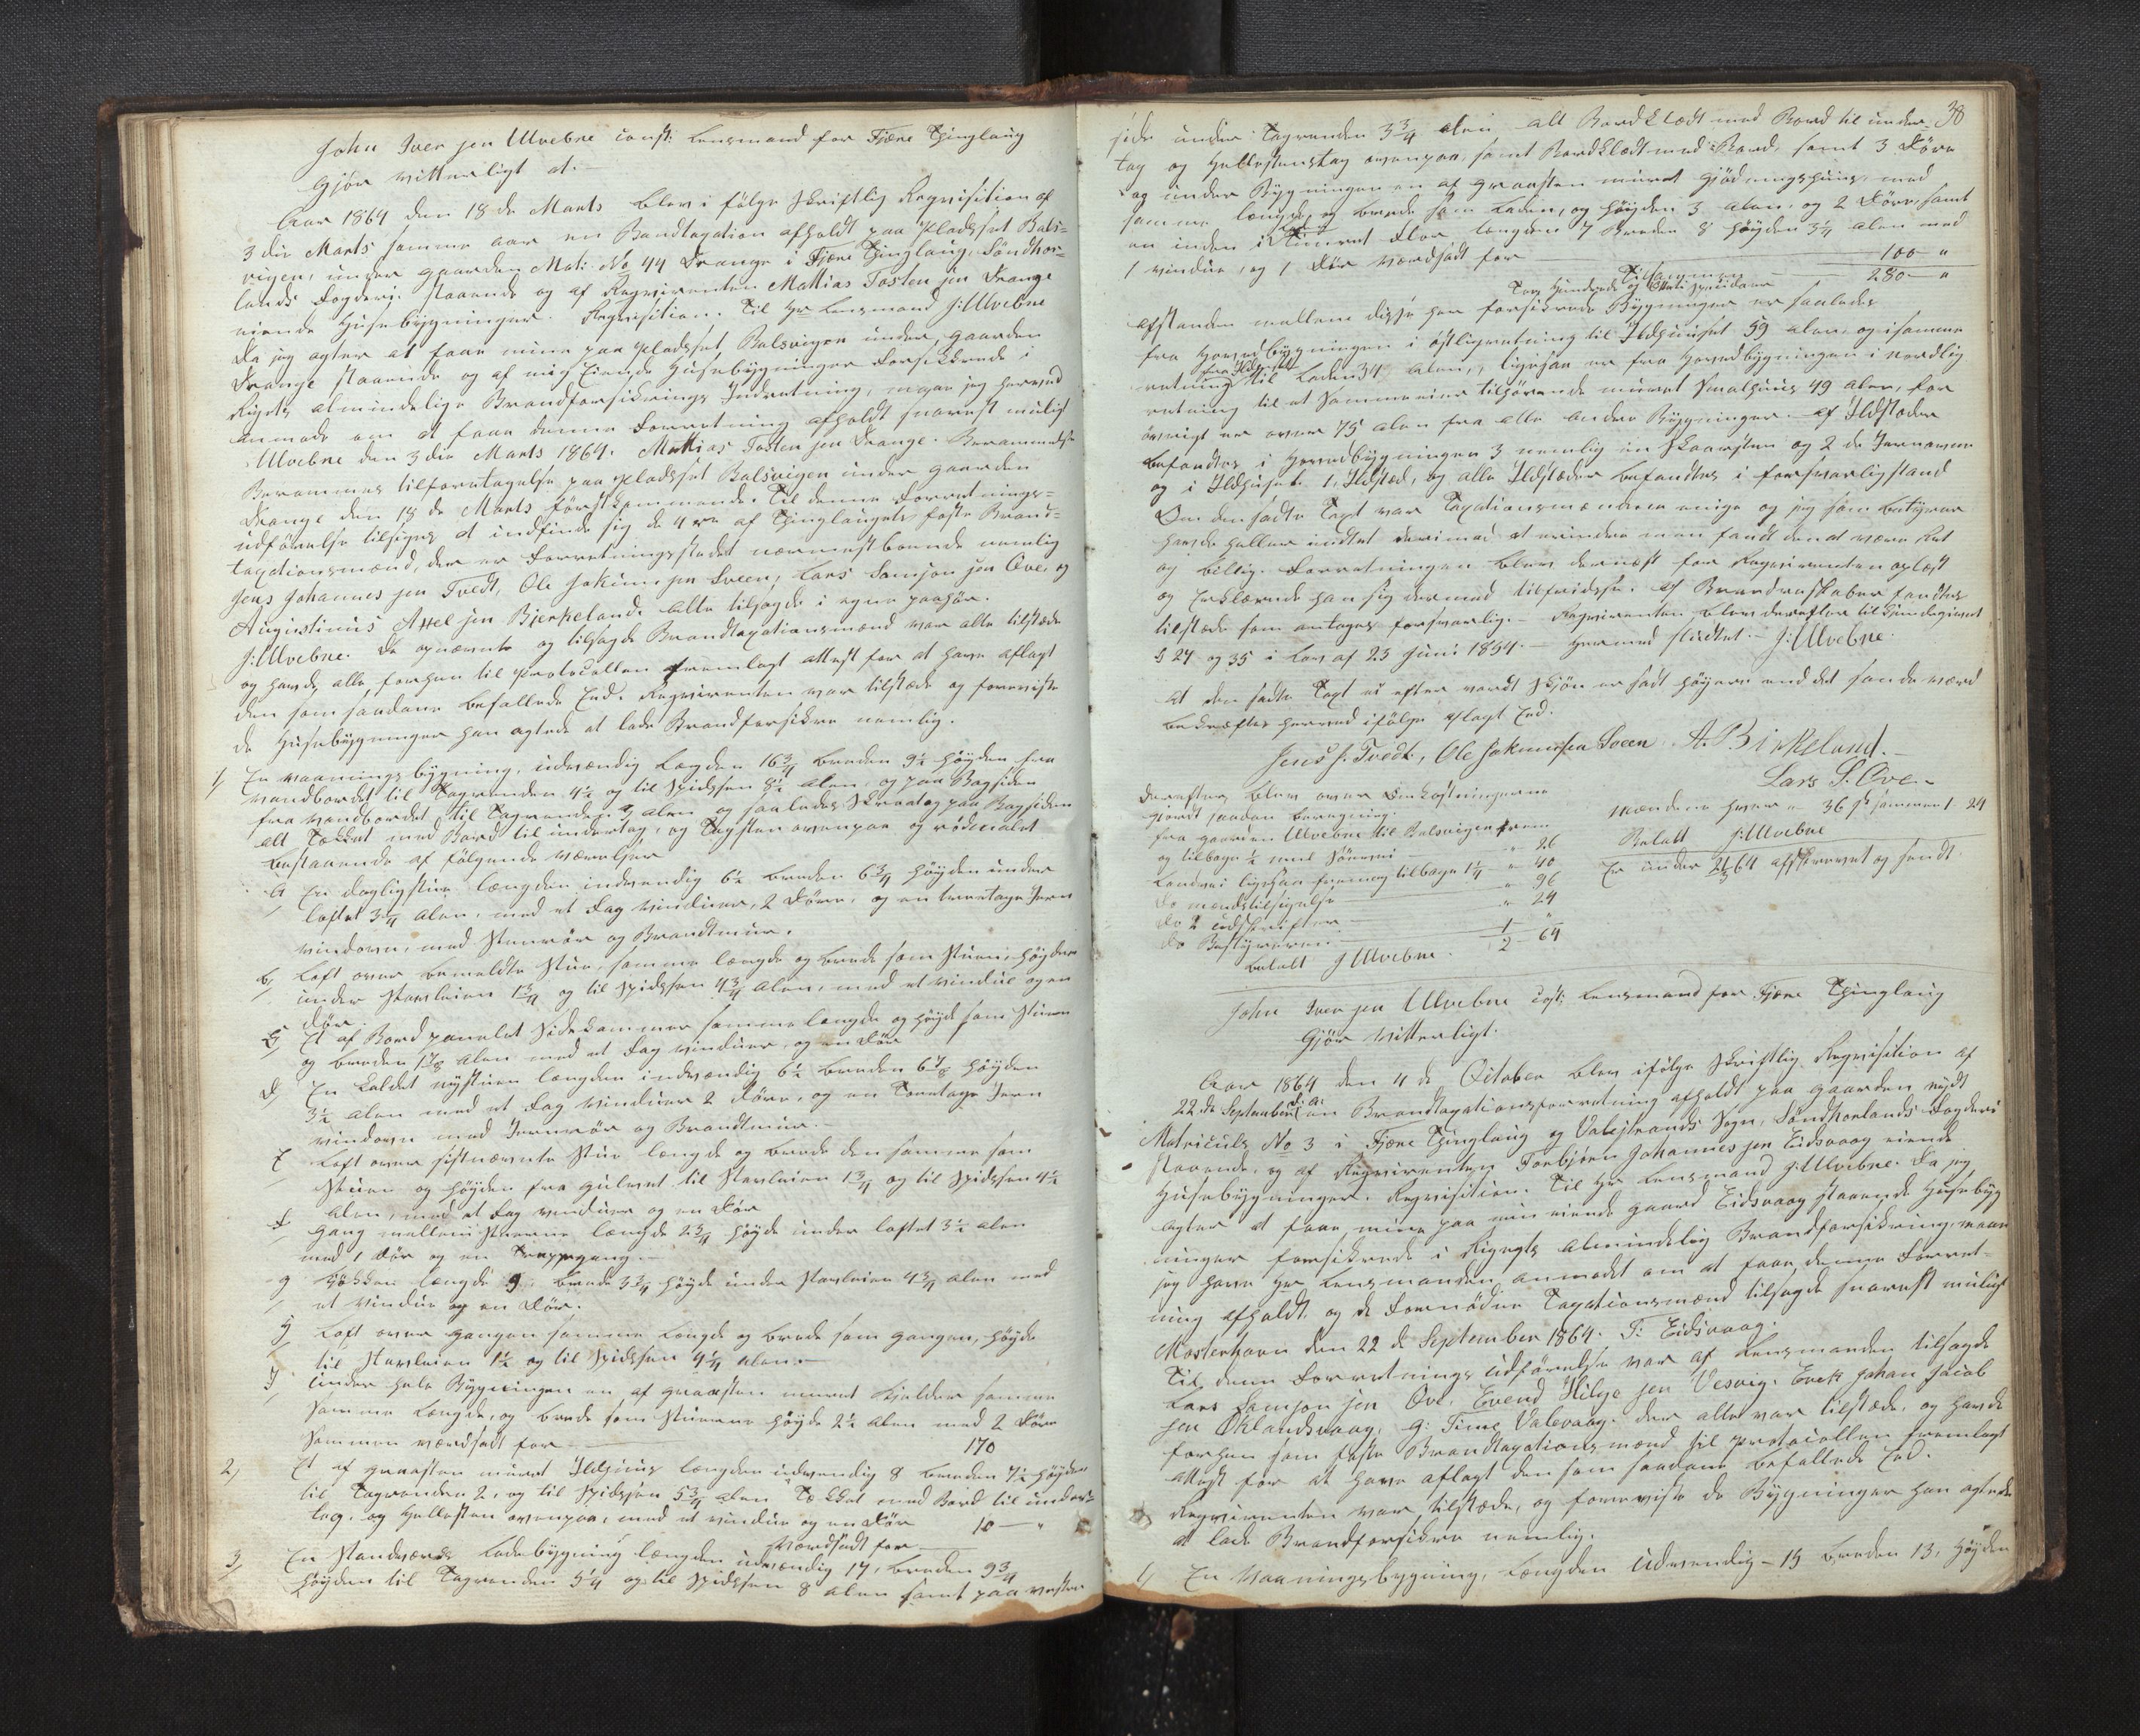 John Iver sen Ulvebne const: Lensmand for Fjære Thinglaug
Gjør vitterligt at:-
Aar 1864 den 18 de Marts blev i følge skriftlig Reqvisition af
3 die Marts samme aar en Brandtaxation afholdt paa Pladsset Bals-
vigen, under gaarden Mat: No 44 Drange i Fjære Thinglaug, Søndhor-
lands Fogderi staaende og af Reqvirenten Mathias Tosten sen Drange
eiende Husebygninger. Reqvisition. Til Hr Lensmand J: Ulvebne
Da jeg agter at faae mine paa Pladsset Balsvigen under gaarden
Drange staaende og af mig Eiende Husebygninger Forsikkrede i
Rigets almindelige Brandforsikrings Indretning, maae jeg herved
anmode om at faae denne Forretning afholdt snarest muligt
Ulvebne den 3 die Marts 1864. Mathias Tosten sen Drange. Berammelse
Berammes til foretagelse paa Pladsset Balsvigen under gaarden
Drange den 18 de Marts førstkommende. Til denne Forretnings-
udførelse tilsiges at indfinde sig de 4 re af Thinglaugets faste Brand-
taxtionsmænd, der er Forretningsstedet nærmest boende nemlig
Jens Johannes sen Tvedt, Ole Jokum sen Sveen, Lars Samson sen Ove, og
Augustinus Axel sen Bjerkeland. alle tilsagde i egne paahør.
J: Ulvebne. De opnævnte og tilsagde Brandtaxationsmænd var alle tilstæde
og havde alle forhen til Protocollen fremlagt attest for at have aflagt
den som saadane befallede Eed. Reqvirenten var tilstæde og foreviste
de Husebygninger han agtede at lade Brandforsikre nemlig.
1, En vaaningsbygning, udvændig Længden 16 3/4 breden 9 1/2 høyden fra
vandbordet til Tagrenden 4 1/2 og til Spidssen 8 1/2 alen, og paa Bagsiden
fra vandbordet til Tagrenden 2 alen og saaledes Skraatag paa Bagsiden
alt Tækket med Bord til undertag, og Tagsten ovenpaa og rødmalet
bestaaende af følgende værelser
a, En dagligstue længden indvendig 6 1/2 breden 6 3/4 høyden under
loftet 3 1/4 alen, med et Fag vinduer, 2 Døre, og en toeetages Jern
vindovn, med Steenrør og Brandtmuur.
b, Loft over bemeldte Stue, samme længde og brede som Stuen, høyden
under Stavleien 1 3/4 og til Spidssen 4 3/4 alen, med et vindue og en
Dør.
c, Et af Bord panelet Sidekammer samme længde og høyde som Stuen
og breden 1 7/8 alen med et Fag vinduer, og en Dør
d, En kaldet nystuen længden indvændig 6 1/2 breden 6 1/8 høyden
3 1/2 alen med et Fag vinduer 2 Døre, og en Toeetages Jern
vindovn med Jernrør og Brandtmuur.-
e, Loft over sistnævnte Stue længde og brede den samme som
Stuen og høyden fra gulvet til Stavleien 1 3/4 og til Spidssen 4 1/2
alen, med et Fag vinduer og en Dør
f, Gang mellem Stuerne længde 2 3/4 høyde under loftet 3 1/2 alen
med 1 Dør og en Trappegang.-
g, Kjøkken længde 9. brede 3 3/4 høyde under Stavleien 4 3/4 alen med
et vindue og en Dør.
h, Loft over gangen samme længde og brede som gangen, høyde
til Stavleien 1 1/2 og til Spidssen 4 1/4 alen.-
i, Under hele Bygningen en af graasten muret Kjelder samme
samme længde, og brede som Stuerne høyde 2 1/2 alen med 2 Døre
Sammen værdsadt for 170
2, Et af graasten muret Ildhuus længden udvendig 8 breden 7 1/2 høyden
til Tagrenden 2, og til Spidssen 5 3/4 alen Tækket med Bord til under-
tag, og Hellesten ovenpaa, med et vindue og en Dør
værdsadt for 10 - "
3, En Standværds Ladebygning længden udvændig 17, breden 9 3/4
høyden til Tagrenden 5 1/4 og til Spidssen 8 alen samt paa vestre
38
side under Tagrenden 3 3/4 alen alt Bordklædt med Bord til under-
tag og Hellestenstag ovenpaa, samt Bordklædt med Bord, samt 3 Døre
og under Bygningen en af graasten muret gjødningshuus, med
samme længde, og brede som Laden, og høyden 3 alen, og 2 Døre, samt
en inden i Timret Flor længden 7 Breden 8 høyden 3 1/4 alen med
1 vindue, og 1 Dør værdsadt for 100 "
Tilsammen 280 - "
Toe Hundrede og Otteti Specidaler
afstanden mellem disse her forsikrede Bygninger er saaledes
fra Hovedbygningen i østligretning til Ildhuuset 59 alen, og i samme
retning fra Ildhuset til Laden 34 alen, ligesaa er fra Hovedbygningen i nordlig
retning til et Sammeeier tilhørende muret Smalhuus 49 alen, for
øvrigt er over 75 alen fra alle andre Bygninger. af Ildstæder
befandtes i Hovedbygningen 3 nemlig en Skorsten og 2 de Jernovne
og i Ildhuset 1, Ildsted, og alle Ildstæder befandtes i forsvarligstand
Om den sadte Taxt var Taxationsmændene enige og jeg som bestyrer
havde heller indtet derimod at erindre men fandt den at være Ret
og billig. Forretningen blev dernæst for Reqvirenten oplæst
og Erklærede han sig dermed tilfreidsse. af Brandredskaber fandtes
tilstæde som antages forsvarlig.- Reqvirenten blev derefter tilkjendegivet
§ 24 og 35 i Lov af 25 Juni 1854.- Hermed sluttet.- J: Ulvebne.
At den sadte Taxt ei efter vordt Skjøn er sadt høyere end det sande værd
bekræftes herved ifølge aflagt Eed.
Jens J. Tvedt, Ole Jokumsen Sveen A. Birkeland.-
Lars S. Ove.-
Derefter blev over Omkostningerne
gjordt saadan beregning.
fra gaarden Ulvebne til Balsvigen frem
og tilbage 1/2 miil Søevei " 26
Landvei ligesaa frem og tilbage 1 1/4 " 40
Do mændstilsigelse " 96
Do 2 udskrifter " 24
Do Bestyreren 1 "
2 - 64
betalt J Ulvebne.
Mændene hver " 36 sk sammen 1 24
Betalt J: Ulvebne
Er under 21/3 64 afskrevet og sendt.
John Iver sen Ulvebne cost: Lensmand for Fjære Thinglaug
Gjør vitterligt.
Aar 1864 den 4 de October blev ifølge skriftlig Reqvisition af
22 de September d: A: en Brandtaxationsforretning afholdt paa Gaarden nydt
Matriculs No 3 i Fjære Thinglaug og Valestrands Sogn, Søndhorlands Fogderi
staaende, og af Reqvirenten Torbjørn Johannes sen Eidsvaag eiende
Husebygninger. Reqvisition. Til Hr Lensmand J: Ulvebne. Da jeg
agter at faae mine paa min eiende gaard Eidsvaag staaende Husebyg
ninger forsikrede i Rigets Almindelig Brandforsikring, maae
jeg have Hr Lensmanden anmodet om at faae denne Forret-
ning afholdt, og de Fornødne Taxationsmænd tilsagde snarest muligt
Mosterhavn den 22 de September 1864. T: Eidsvaag.
Til denn Forretnings udførelse var af Lensmanden tilsagde
Lars Samson sen Ove, Evend Hilge sen Vesvig. Enok Johan Jacob
sen Øklandsvaag, G: Time Valevaag. der alle var tilstæde, og havde
forhen som faste Brandtaxationsmænd til Protocollen fremlagt
attest for at have aflagt den som saadane befallede Eed.
Reqvirenten var tilstæde, og foreviste de Bygninger han agtede
at lade Brandforsikre nemlig.
1, En Vaaningsbygning, Længden Udvendig - 15 breden 13, Høyden